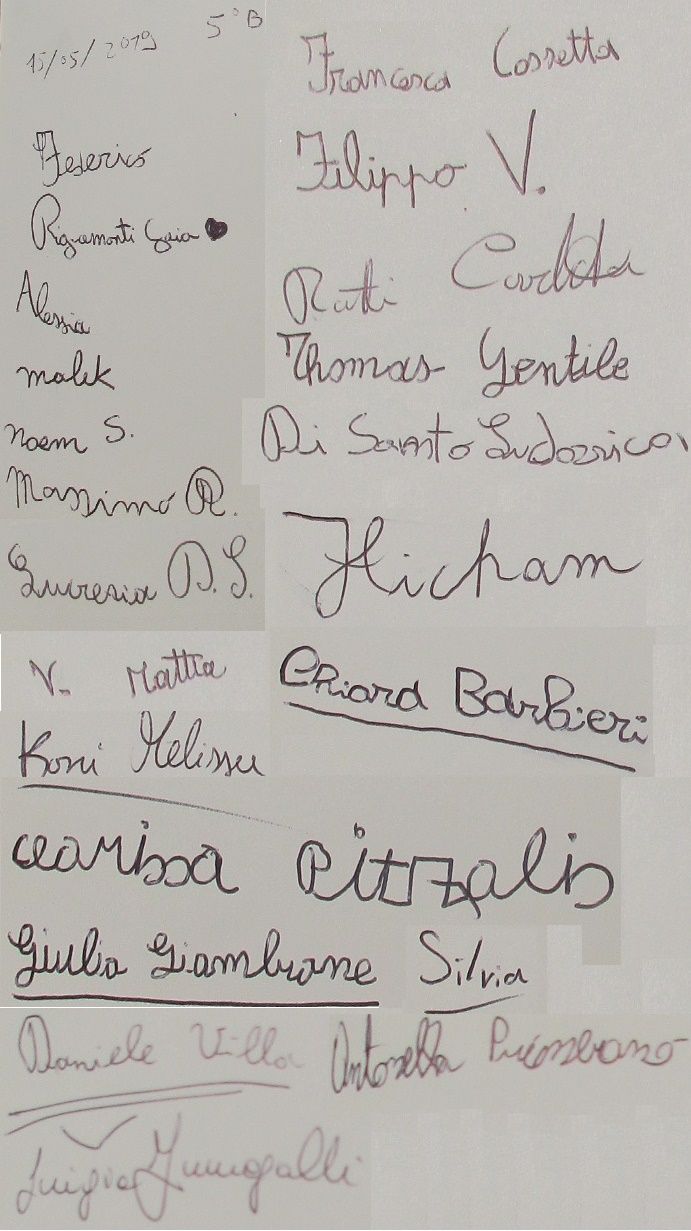 15/05/2019 5°B
Federico
Rigamonti Gaia
Alessia
malek
noem S.
Massimo R.
Lucrezia D.S.
V. Mattia
Koni Melissa
Francesca Cossetta
Filippo V.
Ratti Carlotta
Thomas Gentile
Di Santo Ludovica
Hicham
Chiara Barbieri
Clarissa Pitzalis
Giulia Giambrone Silvia
Daniele Villa Antonella
Luigia Fumagalli